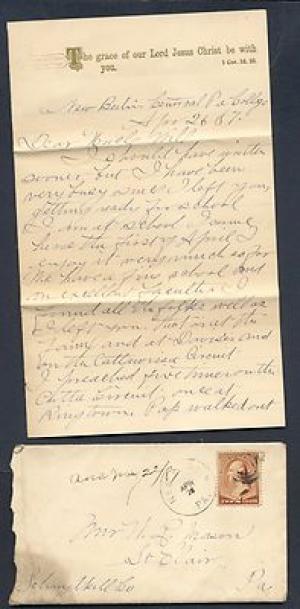 The grace of our Lord Jesus Christ be with
you.
1 Cor. 16, 23.
New Berlin Central Pa College
Apr 26 87.
Dear Uncle Will
I should have written
sooner, but I have been
very busy since I left you,
getting ready for school
I am at school I came
here the first of April, I
enjoy it very much so far
We have a fine school and
an excellent faculty.
I found all the folks well as
I left you. Was in at the
and at
on the Catawissa Circuit
I preached five times on the
Circuit once at
Ringtown. Pap walked out
Ansd 
PA
Mr W. L. Mason
St Clair
Schuylkill Co Pa.